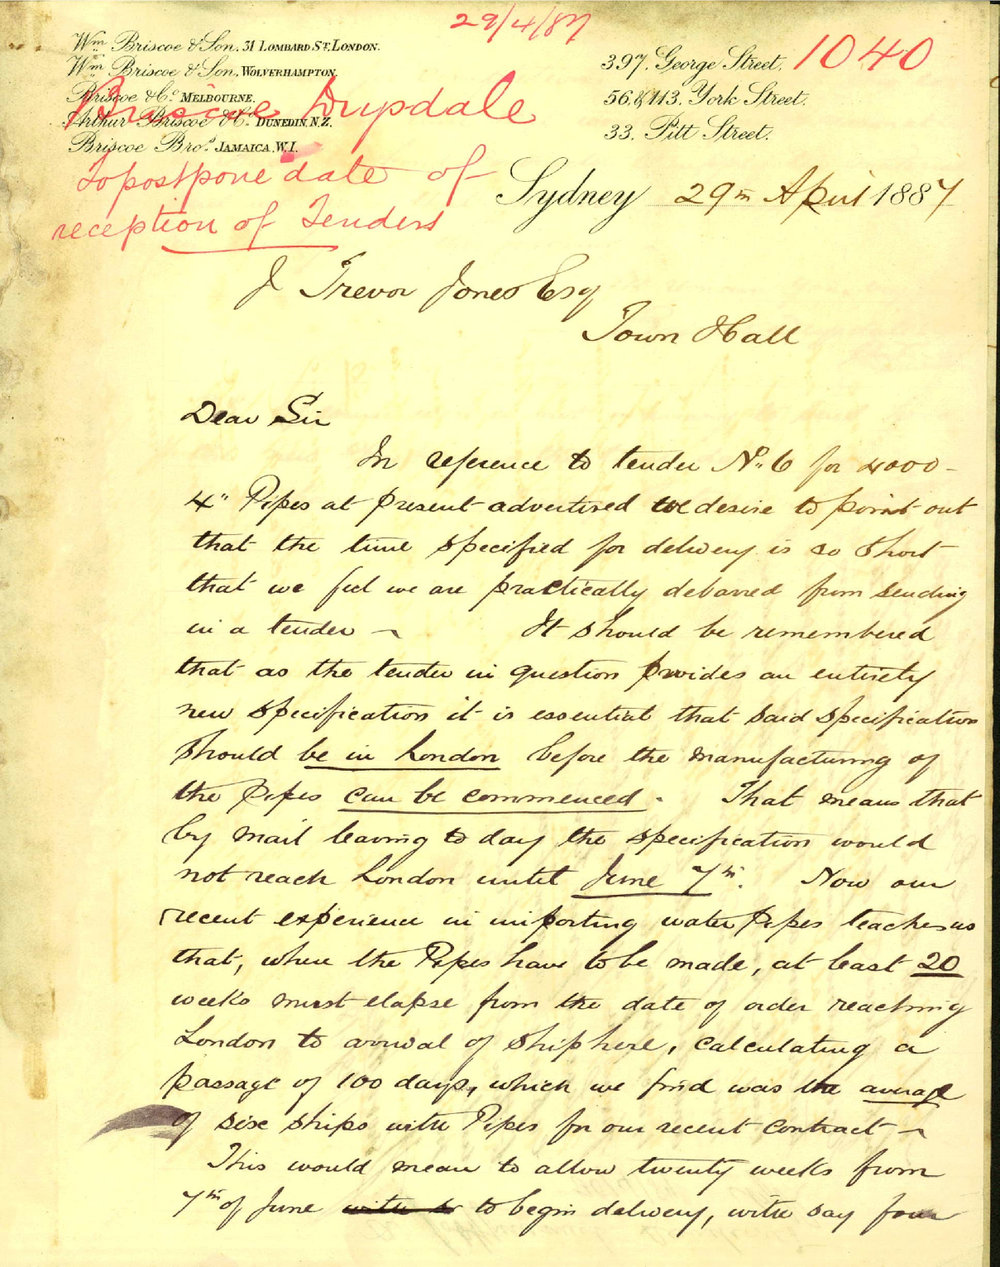 29/4/87
Wm Briscoe & Son, 31 LOMBARD ST. LONDON.
Wm Briscoe & Son, WOLVERHAMPTON.
Briscoe & Co MELBOURNE.
Arthur Briscoe & Co. DUNEDIN, N.Z.
Briscoe Bros. JAMAICA, W.I.
397, George Street,
56 & 113, York Street.
33, Pitt Street.
1040
Briscoe Drysdale
To postpone date of
reception of Tenders
Sydney 29th April 1887
J Trevor Jones Esq
Town Hall
Dear Sir
In reference to tender No. 6 for 4000-
4" Pipes at present advertised we desire to point out
that the time specified for delivery is so short
that we feel we are practically debarred from sending
in a tender ~ It should be remembered
that as the tender in question provides an entirely
new specification it is essential that said specification
should be in London before the manufacturing of
the Pipes can be commenced. That means that
by mail leaving to day the specification would
not reach London until June 7th. Now our
recent experience in importing water Pipes teaches us
that, where the Pipes have to be made, at least 20
weeks must elapse from the date of order reaching
London to arrival of ship here, calculating a
passage of 100 days, which we find was the average
of six ships with Pipes for our recent contract ~
This would mean to allow twenty weeks from
7th of June to begin delivery, with say four